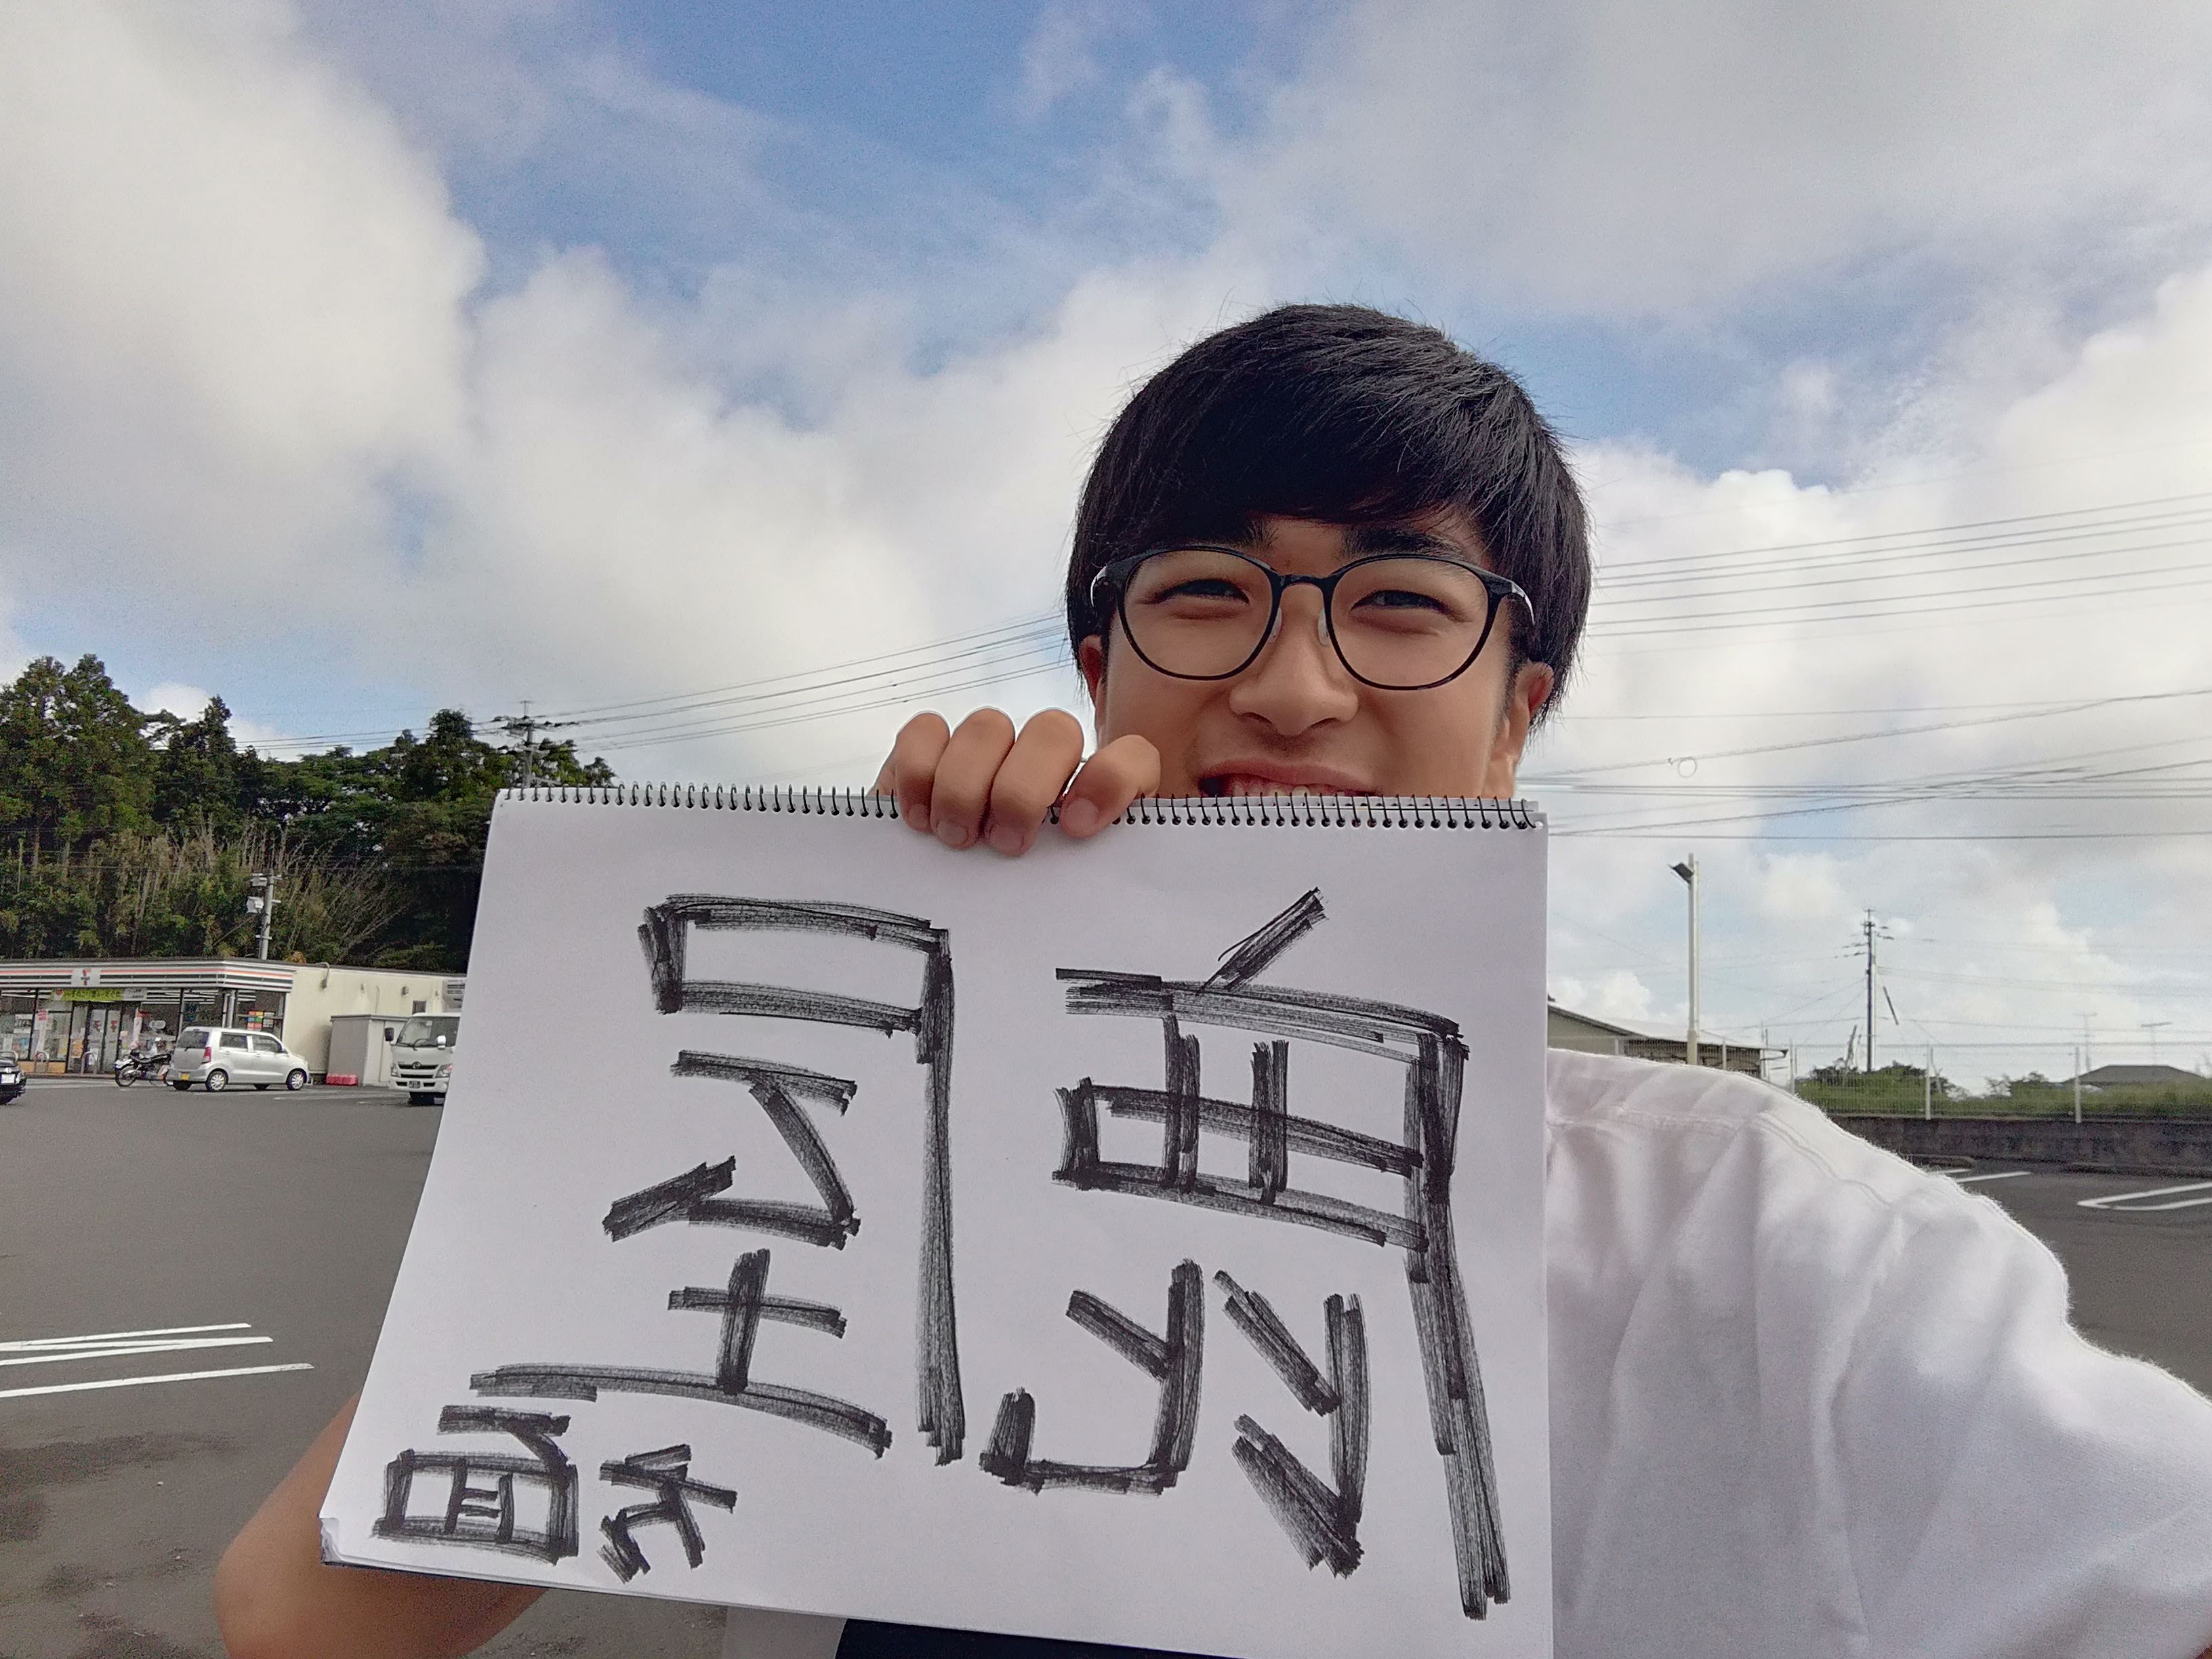 鹿屋
方面